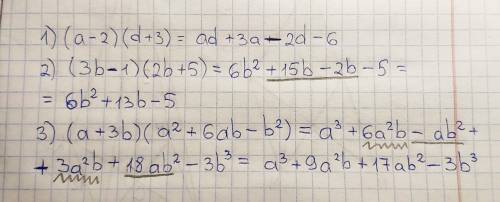 1) (a-2)(d+3) = ad+3a-2d-6
2) (3b-1)(2b+5) = 6b²+15b-2b-5 =
= 6b²+13b-5
3) (a+3b)(a²+6ab-b²) = a³+6a²b-ab²+
+3a²b+18ab²-3b³ = a³+9a²b+17ab²-3b³